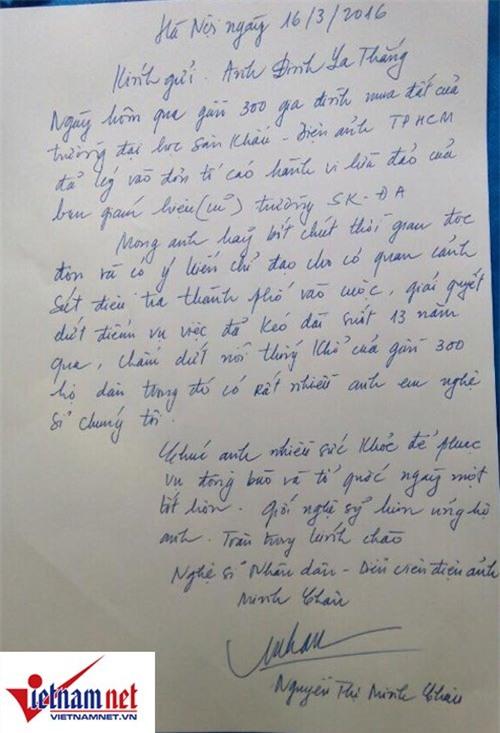 Hà Nội ngày 16/3/2016
Kính gửi. Anh Đinh La Thăng
Ngày hôm qua gần 300 gia đình mua đất của
trường đại học Sân Khấu - Điện ảnh TPHCM
đã ký vào đơn tố cáo hành vi lừa đảo của
ban giám hiệu (cũ) trường SK-ĐA
Mong anh hãy bớt chút thời gian đọc
đơn và có ý kiến chỉ đạo cho cơ quan cảnh
sát điều tra thành phố vào cuộc, giải quyết
dứt điểm vụ việc đã kéo dài suốt 13 năm
qua, chấm dứt nỗi thống khổ của gần 300
hộ dân trong đó có rất nhiều anh em nghệ
sĩ chúng tôi.
Chúc anh nhiều sức khỏe để phục
vụ đồng bào và tổ quốc ngày một
tốt hơn. Giới nghệ sỹ luôn ủng hộ
anh. Trân trọng kính chào
Nghệ sĩ Nhân dân - Diễn viên điện ảnh
Minh Châu
Nguyễn Thị Minh Châu
vietnamnet
VIETNAMNET.VN